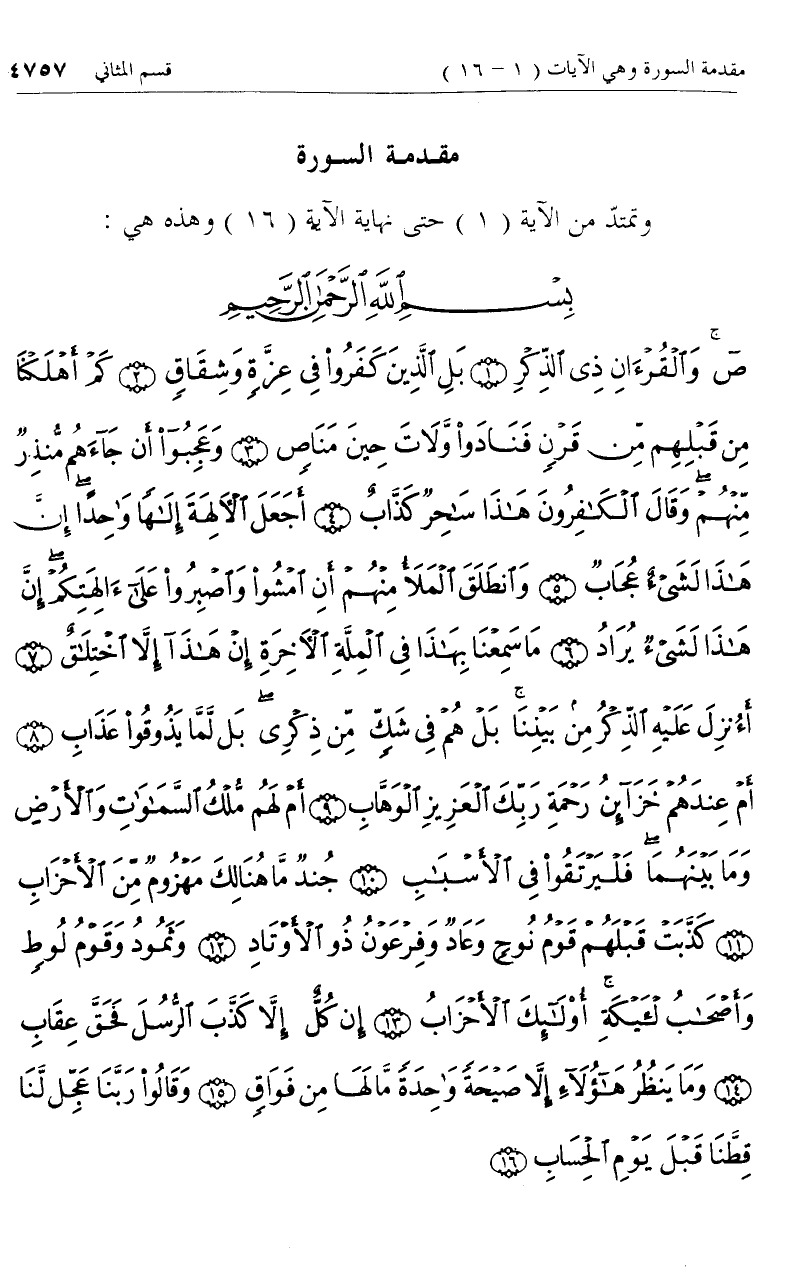 مقدمة السورة وهي الآيات ( ١ – ١٦ ) قسم المثاني ٤٧٥٧
مقدمة السورة
وتمتدّ من الآية ( ١ ) حتى نهاية الآية ( ١٦ ) وهذه هي :
بِسْمِ ٱللَّهِ ٱلرَّحْمَٰنِ ٱلرَّحِيمِ
صٓ ۚ وَٱلْقُرْءَانِ ذِى ٱلذِّكْرِ ﴿١﴾ بَلِ ٱلَّذِينَ كَفَرُوا۟ فِى عِزَّةٍ وَشِقَاقٍ ﴿٢﴾ كَمْ أَهْلَكْنَا
مِن قَبْلِهِم مِّن قَرْنٍ فَنَادَوا۟ وَّلَاتَ حِينَ مَنَاصٍ ﴿٣﴾ وَعَجِبُوٓا۟ أَن جَآءَهُم مُّنذِرٌ
مِّنْهُمْ ۖ وَقَالَ ٱلْكَٰفِرُونَ هَٰذَا سَٰحِرٌ كَذَّابٌ ﴿٤﴾ أَجَعَلَ ٱلْءَالِهَةَ إِلَٰهًا وَٰحِدًا ۖ إِنَّ
هَٰذَا لَشَىْءٌ عُجَابٌ ﴿٥﴾ وَٱنطَلَقَ ٱلْمَلَأُ مِنْهُمْ أَنِ ٱمْشُوا۟ وَٱصْبِرُوا۟ عَلَىٰٓ ءَالِهَتِكُمْ ۖ إِنَّ
هَٰذَا لَشَىْءٌ يُرَادُ ﴿٦﴾ مَا سَمِعْنَا بِهَٰذَا فِى ٱلْمِلَّةِ ٱلْءَاخِرَةِ إِنْ هَٰذَآ إِلَّا ٱخْتِلَٰقٌ ﴿٧﴾
أَءُنزِلَ عَلَيْهِ ٱلذِّكْرُ مِنۢ بَيْنِنَا ۚ بَلْ هُمْ فِى شَكٍّ مِّن ذِكْرِى ۖ بَل لَّمَّا يَذُوقُوا۟ عَذَابِ ﴿٨﴾
أَمْ عِندَهُمْ خَزَآئِنُ رَحْمَةِ رَبِّكَ ٱلْعَزِيزِ ٱلْوَهَّابِ ﴿٩﴾ أَمْ لَهُم مُّلْكُ ٱلسَّمَٰوَٰتِ وَٱلْأَرْضِ
وَمَا بَيْنَهُمَا ۖ فَلْيَرْتَقُوا۟ فِى ٱلْأَسْبَٰبِ ﴿١٠﴾ جُندٌ مَّا هُنَالِكَ مَهْزُومٌ مِّنَ ٱلْأَحْزَابِ
﴿١١﴾ كَذَّبَتْ قَبْلَهُمْ قَوْمُ نُوحٍ وَعَادٌ وَفِرْعَوْنُ ذُو ٱلْأَوْتَادِ ﴿١٢﴾ وَثَمُودُ وَقَوْمُ لُوطٍ
وَأَصْحَٰبُ لْـَٔيْكَةِ ۚ أُو۟لَٰٓئِكَ ٱلْأَحْزَابُ ﴿١٣﴾ إِن كُلٌّ إِلَّا كَذَّبَ ٱلرُّسُلَ فَحَقَّ عِقَابِ
﴿١٤﴾ وَمَا يَنظُرُ هَٰٓؤُلَآءِ إِلَّا صَيْحَةً وَٰحِدَةً مَّا لَهَا مِن فَوَاقٍ ﴿١٥﴾ وَقَالُوا۟ رَبَّنَا عَجِّل لَّنَا
قِطَّنَا قَبْلَ يَوْمِ ٱلْحِسَابِ ﴿١٦﴾